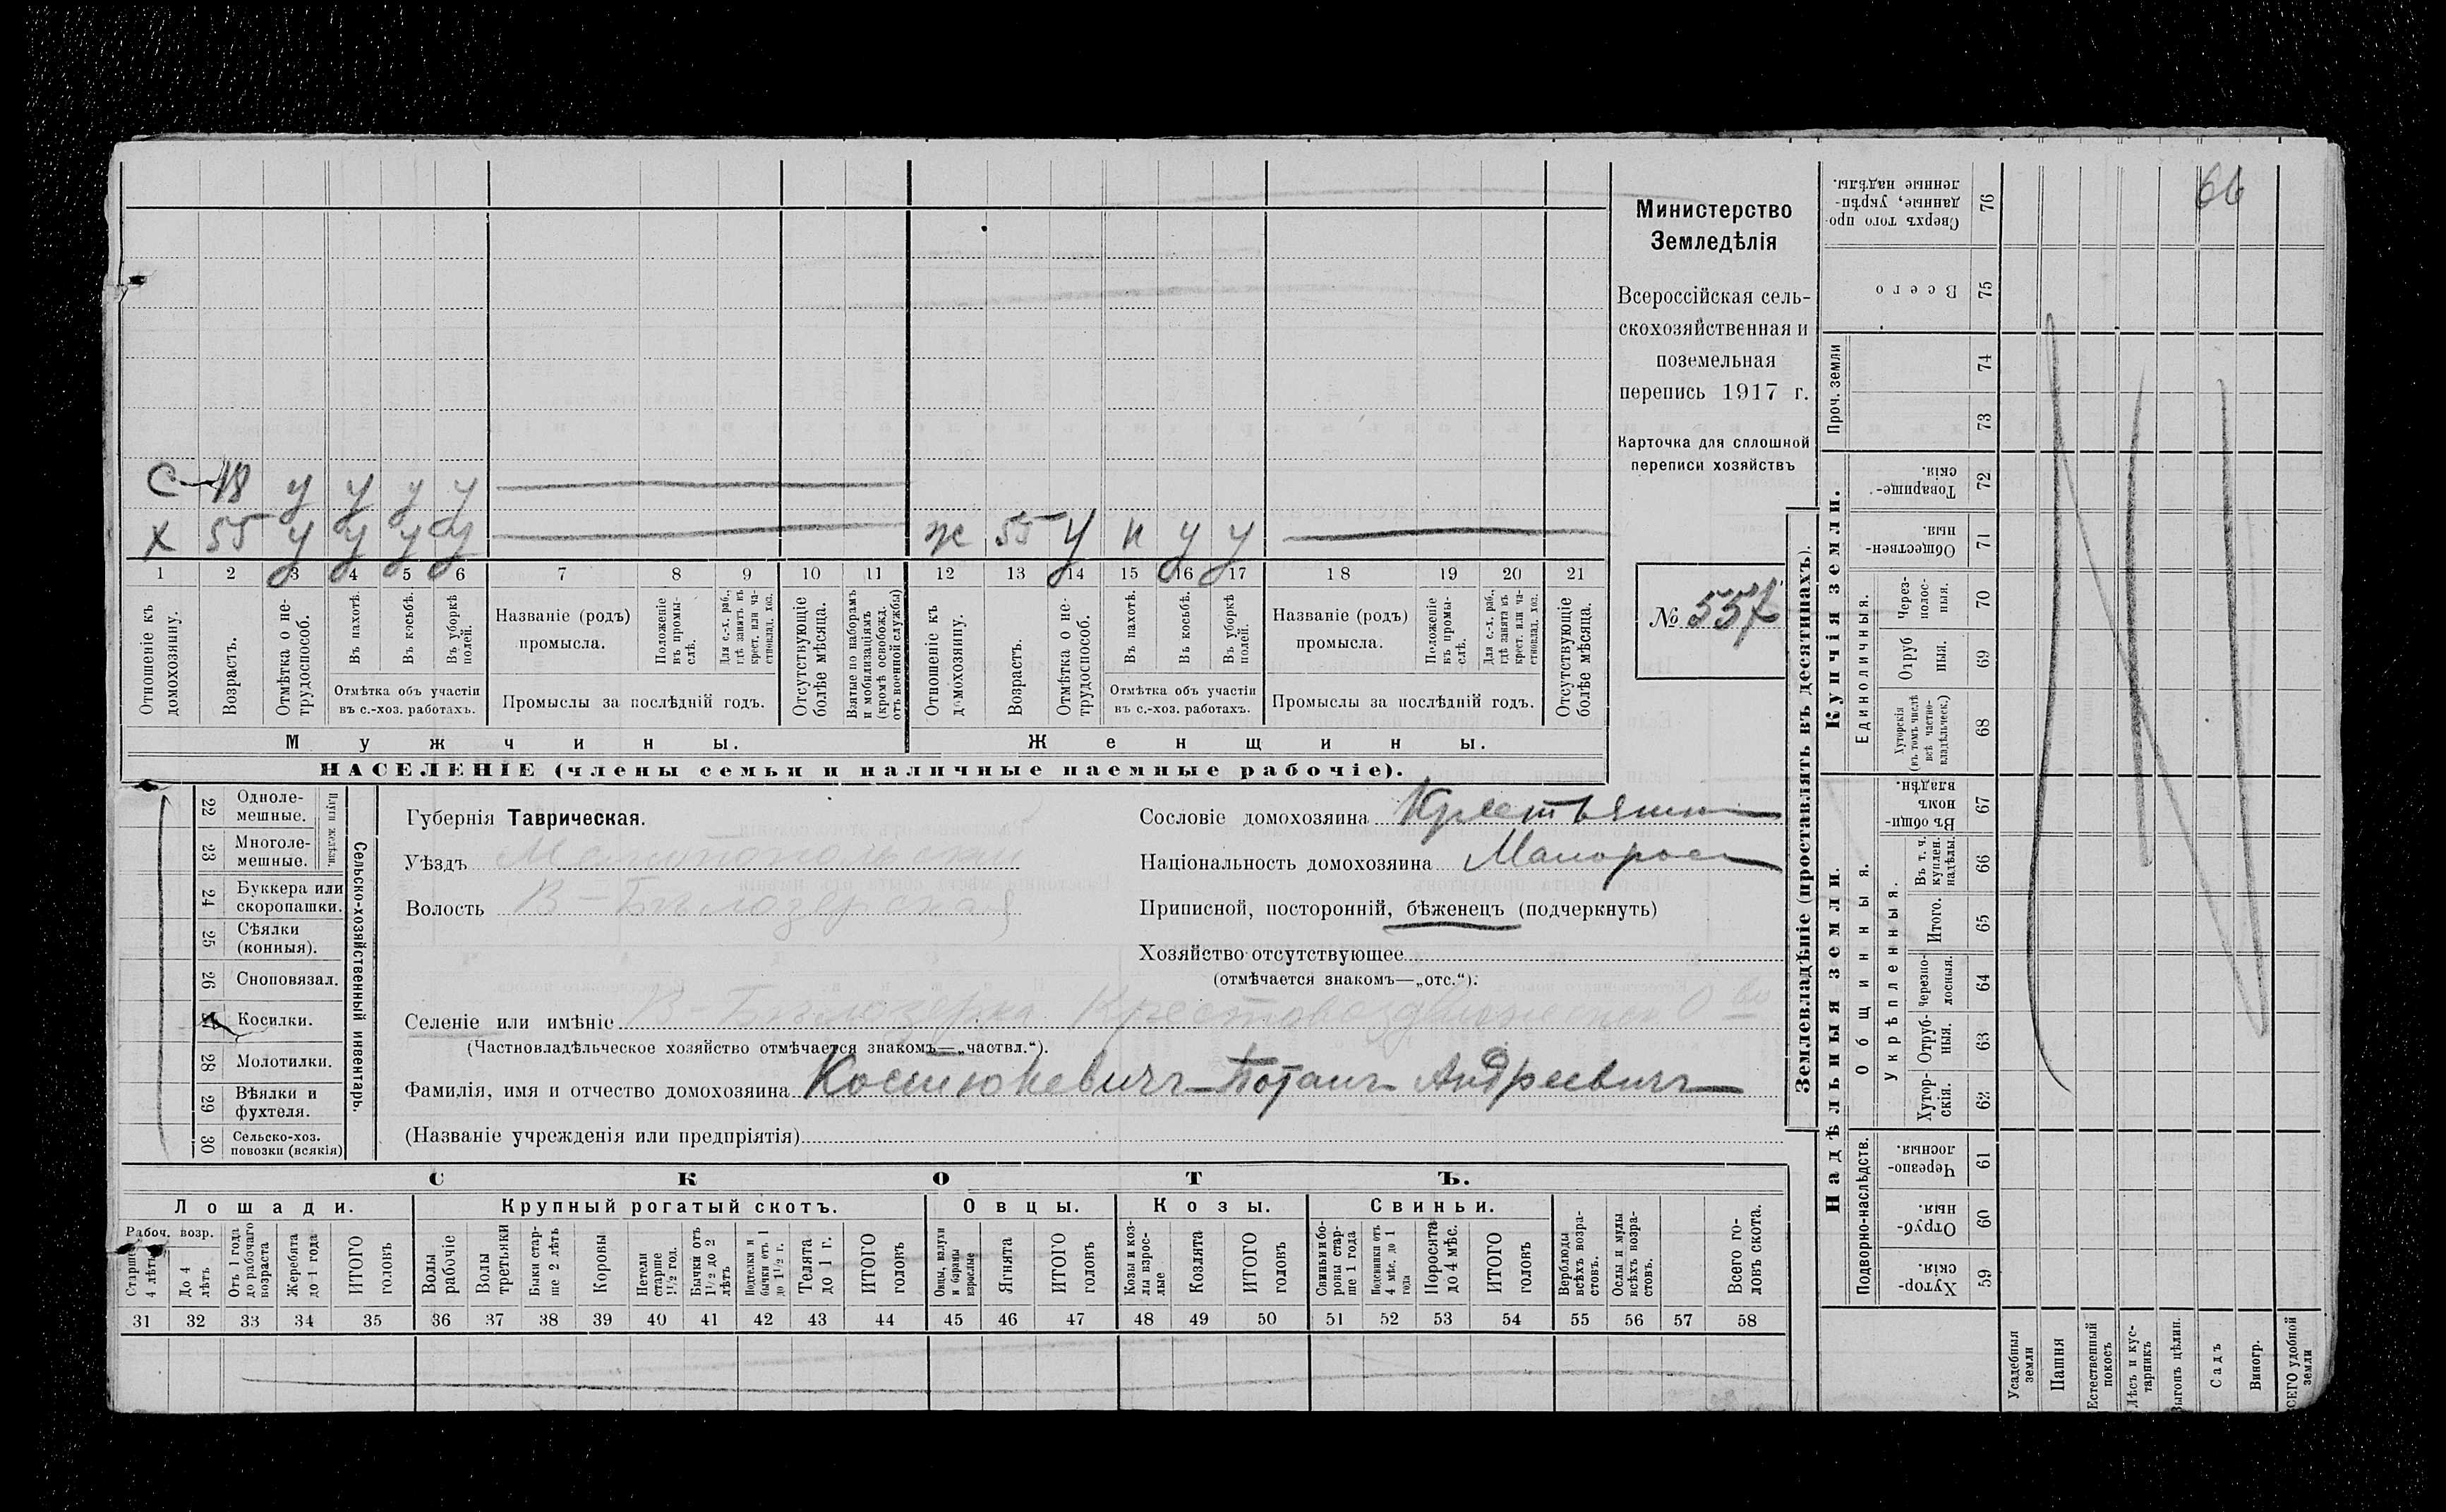 66
С 18 у у у у
х 55 у у у у ж 55 у н у у
1 2 3 4 5 6 7 8 9 10 11 12 13 14 15 16 17 18 19 20 21
Отношеніе къ домохозяину.
Возрастъ.
Отмѣтка о не-
трудоспособ.
Въ пахотѣ.
Въ косьбѣ.
Въ уборкѣ полей.
Отмѣтка объ участіи
въ с.-хоз. работахъ.
Названіе (родъ)
промысла.
Положеніе въ промы-
слѣ.
Для с.-х. раб., гдѣ занятъ въ крест. или ча-
стновлад. хоз.
Промыслы за послѣдній годъ.
Отсутствующіе болѣе мѣсяца.
Взятые по наборамъ и мобилизаціямъ (кромѣ освобожд. отъ военной службы)
Отношеніе къ домохозяину.
Возрастъ.
Отмѣтка о не-
трудоспособ.
Въ пахотѣ.
Въ косьбѣ.
Въ уборкѣ полей.
Отмѣтка объ участіи
въ с.-хоз. работахъ.
Названіе (родъ)
промысла.
Положеніе въ промы-
слѣ.
Для с.-х. раб., гдѣ занята въ крест. или ча-
стновлад. хоз.
Промыслы за послѣдній годъ.
Отсутствующіе болѣе мѣсяца.
Мужчины. Женщины.
НАСЕЛЕНІЕ (члены семьи и наличные наемные рабочіе).
Министерство
Земледѣлія
Всероссійская сель-
скохозяйственная и
поземельная
перепись 1917 г.
Карточка для сплошной
переписи хозяйствъ
№ 557
22 Одноле-
мешные.
23 Многоле-
мешные.
Плуги желѣзн.
24 Буккера или
скоропашки.
25 Сѣялки
(конныя).
26 Сноповязал.
27 Косилки.
28 Молотилки.
29 Вѣялки и
фухтеля.
30 Сельско-хоз.
повозки (всякія)
Сельско-хозяйственный инвентарь.
Губернія Таврическая.
Уѣздъ Мелитопольскій
Волость В-Бѣлозерская
Сословіе домохозяина Крестьянин
Національность домохозяина Малорос
Приписной, посторонній, бѣженецъ (подчеркнуть)
Хозяйство отсутствующее
(отмѣчается знакомъ—„отс.“).
Селеніе или имѣніе В-Бѣлозерка Крестовоздвиженск О во
(Частновладѣльческое хозяйство отмѣчается знакомъ—„частвл.“).
Фамилія, имя и отчество домохозяина Костюкевичъ Потапъ Андреевичъ
(Названіе учрежденія или предпріятія)
СКОТЪ.
Лошади. Крупный рогатый скотъ. Овцы. Козы. Свиньи.
Рабоч. возр.
Старше 4 лѣтъ
До 4 лѣтъ
Отъ 1 года до рабочаго возраста
Жеребята до 1 года
ИТОГО головъ
Волы рабочіе
Волы третьяки
Быки стар-
ше 2 лѣтъ
Коровы
Нетели старше 1 1/2 год.
Бычки отъ 1 1/2 до 2 лѣтъ
Подтелки и бычки отъ 1 до 1 1/2 г.
Телята до 1 г.
ИТОГО головъ
Овцы, валухи и бараны взрослые
Ягнята
ИТОГО головъ
Козы и коз-
лы взрос-
лые
Козлята
ИТОГО головъ
Свиньи и бо-
ровы стар-
ше 1 года
Подсвинки отъ 4 мѣс. до 1 года
Поросята до 4 мѣс.
ИТОГО головъ
Верблюды всѣхъ возра-
стовъ.
Ослы и мулы всѣхъ возра-
стовъ.
Всего го-
ловъ скота.
31 32 33 34 35 36 37 38 39 40 41 42 43 44 45 46 47 48 49 50 51 52 53 54 55 56 57 58
Землевладѣніе (проставлять въ десятинахъ).
Надѣльныя земли. Купчія земли. Проч. земли
Подворно-наслѣдств.
Общинныя.
Укрѣпленныя.
Единоличныя.
Хутор-
скія. 59
Отруб-
ныя. 60
Черезпо-
лосныя. 61
Хутор-
скія. 62
Отруб-
ныя. 63
Черезпо-
лосныя. 64
Итого. 65
Въ т. ч. куплен. надѣлы. 66
Въ общи-
номъ владѣн. 67
Хуторскія (въ томъ числѣ всѣ частно-
владѣльческ.) 68
Отруб
ныя. 69
Через-
полос-
ныя. 70
Обществен-
ныя. 71
Товарище-
скія. 72
73
74
Всего 75
Сверхъ того про-
данные, укрѣп-
ленные надѣлы. 76
Усадебныя земли
Пашня
Естественный покосъ
Лѣсъ и кус-
тарникъ
Выгонъ цѣлин.
Садъ
Виногр.
ВСЕГО удобной земли